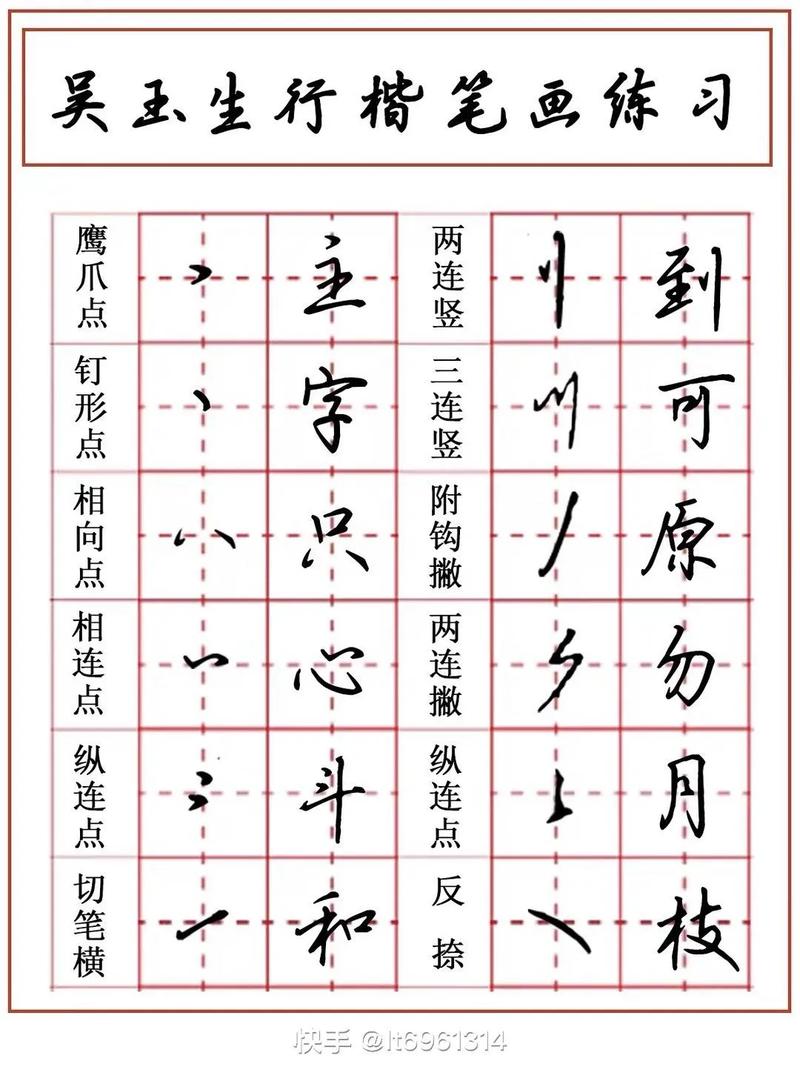 吴玉生行楷笔画练习
鹰爪点 主 两连竖 到
钉形点 字 三连竖 可
相向点 只 附钩撇 原
相连点 心 两连撇 勿
纵连点 斗 纵连点 月
切笔横 和 反捺 枝
快手 @lt6961314